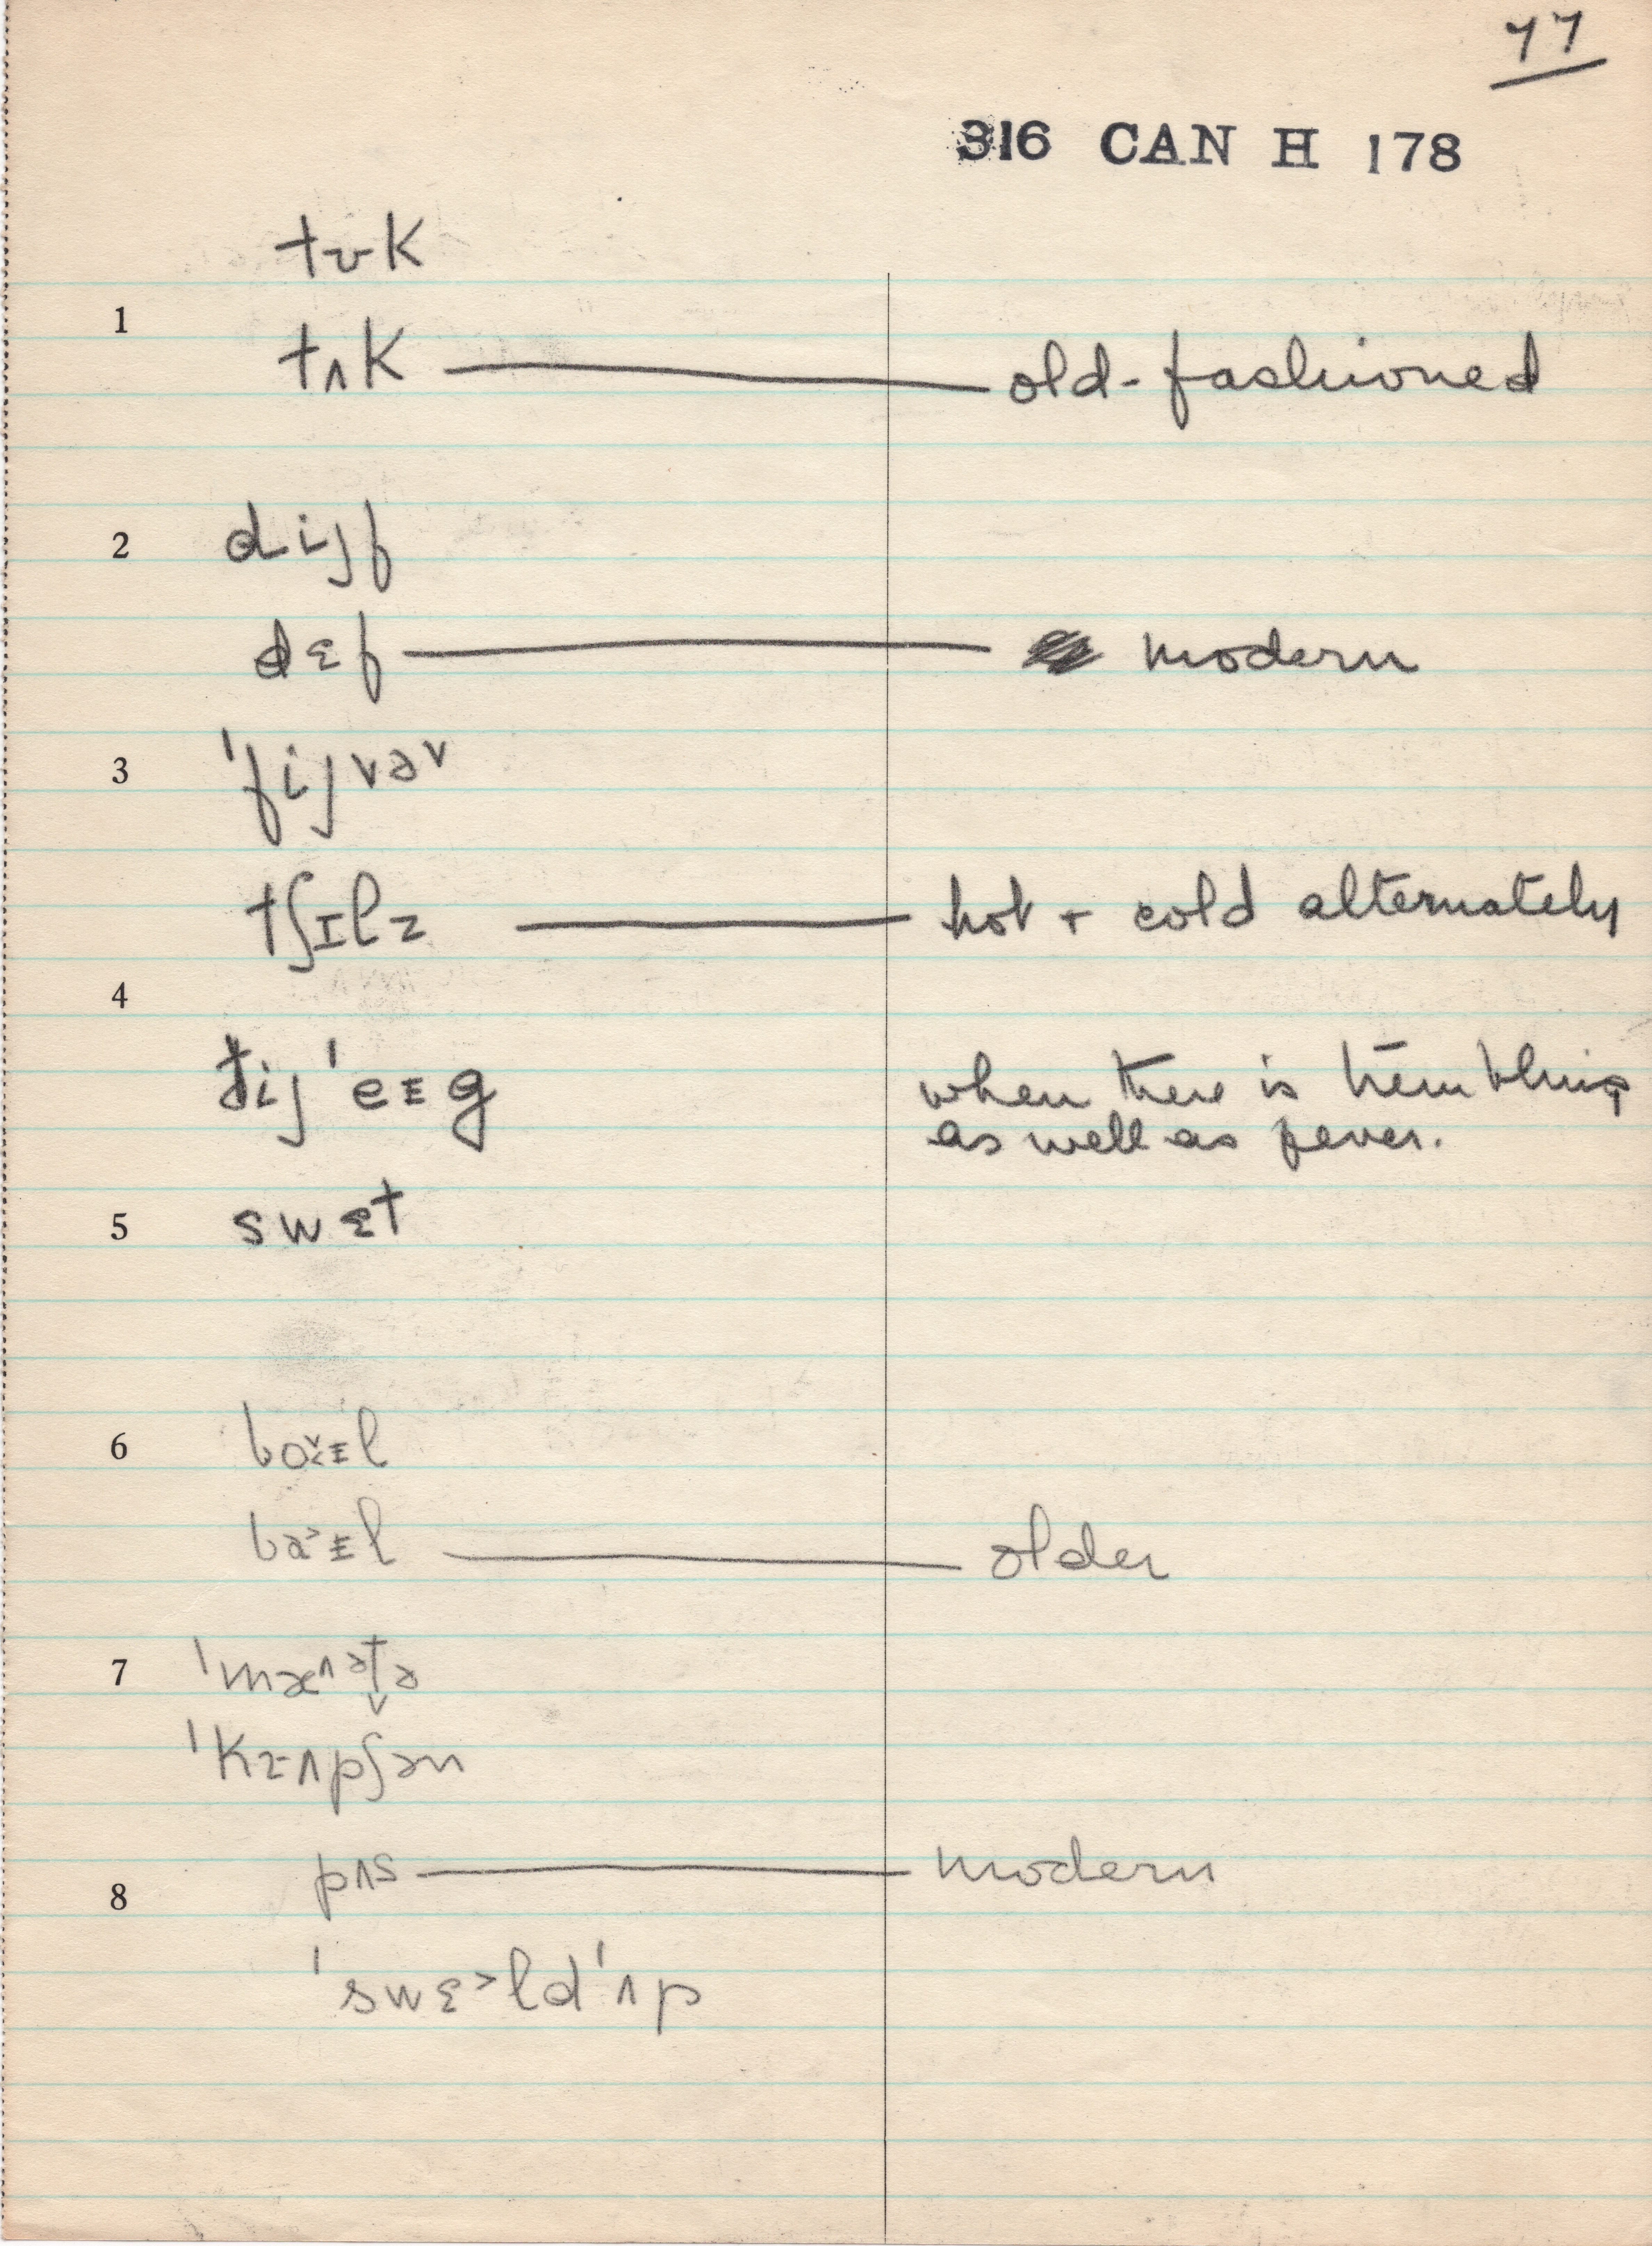 77
316 CAN H 178
tʊk
1
tʌk — old-fashioned
2 dijf
dɛf — modern
3 ˈfijvəv
tʃɪlz — hot + cold alternately
4
ðijˈeɪg when there is trembling
as well as fever.
5 swɛt
6 bɔɪl
baɪl — older
7 ˈmæʌətə
ˈkɪʌpʃən
pʌs — modern
8
ˈswɛ˃ldˈʌp